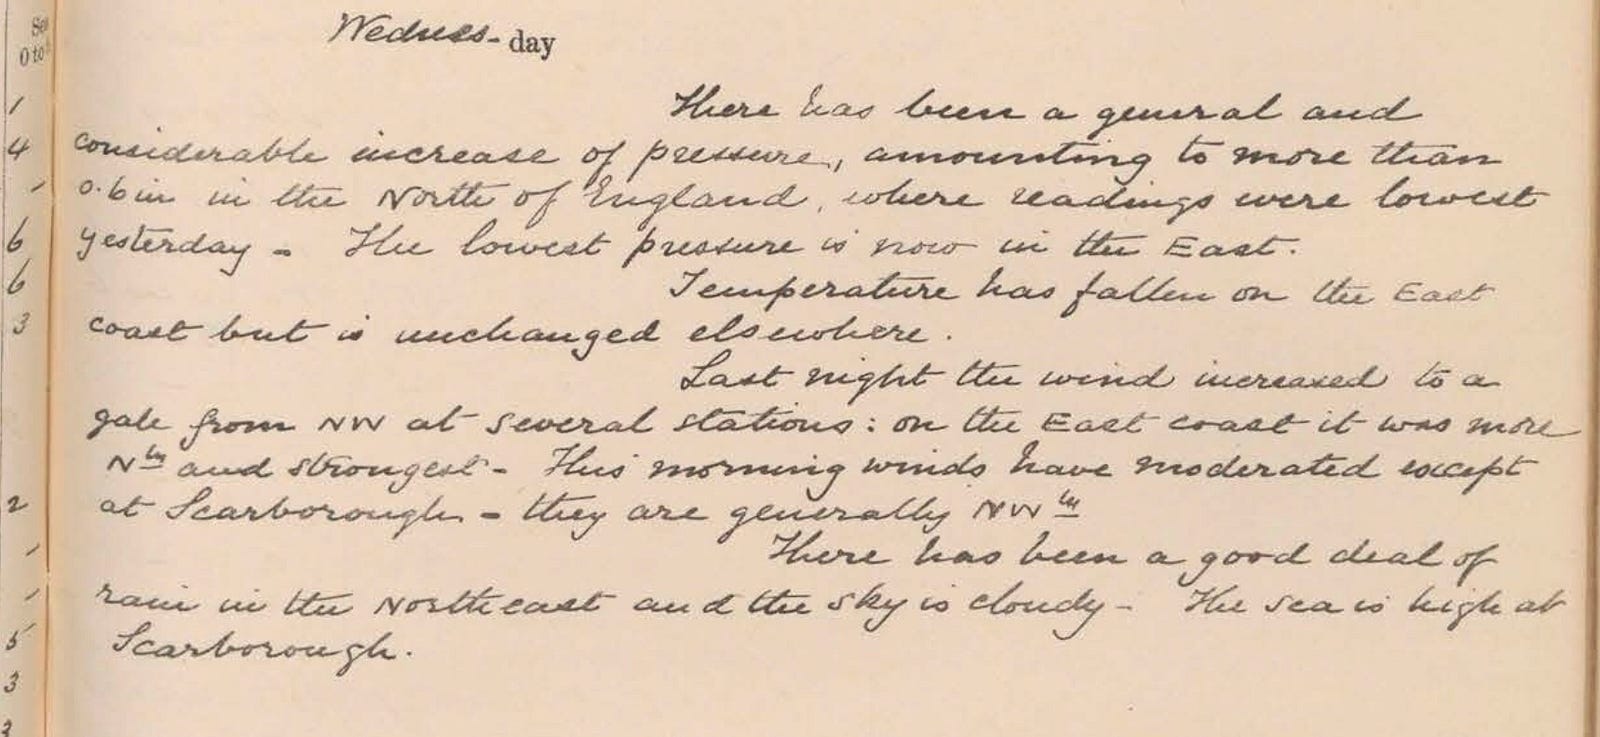 Sea
0 to
Wednes-day
1
There has been a general and
4
considerable increase of pressure, amounting to more than
0.6in in the North of England, where readings were lowest
6
yesterday - The lowest pressure is now in the East.
6
Temperature has fallen on the East
3
coast but is unchanged elsewhere.
Last night the wind increased to a
gale from NW at several stations: on the East coast it was more
Nly and strongest - This morning winds have moderated except
2
at Scarborough - they are generally NWly
There has been a good deal of
rain in the Northeast and the sky is cloudy - The sea is high at
5
Scarborough.
3